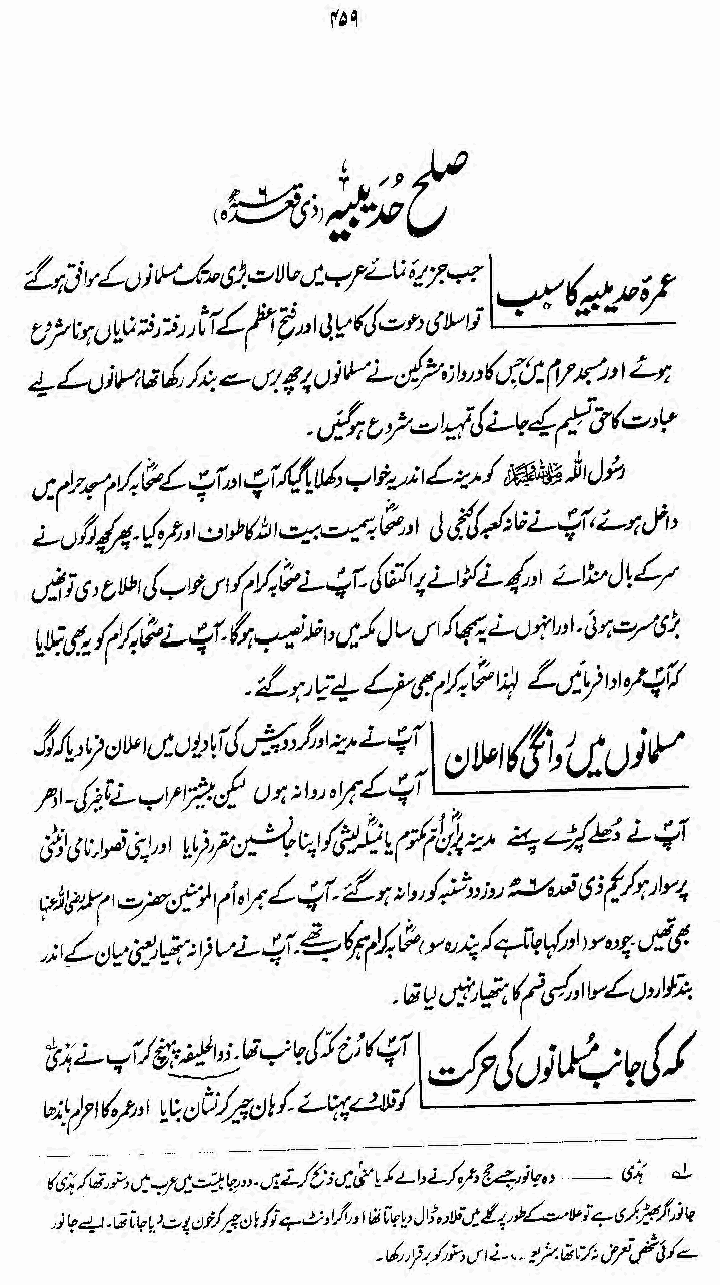 ۴۵۹
صلح حدیبیہ (ذی قعدہ ۶ھ)
عمرۂ حدیبیہ کا سبب
جب جزیرۂ نمائے عرب میں حالات بڑی حد تک مسلمانوں کے موافق ہو گئے
تو اسلامی دعوت کی کامیابی اور فتحِ اعظم کے آثار رفتہ رفتہ نمایاں ہونا شروع
ہوئے اور مسجد حرام میں جس کا دروازہ مشرکین نے مسلمانوں پر چھ برس سے بند کر رکھا تھا، مسلمانوں کے لیے
عبادت کا حق تسلیم کیے جانے کی تمہیدات شروع ہو گئیں۔
رسُول اللہ ﷺ کو مدینہ کے اندر یہ خواب دکھلایا گیا کہ آپؐ اور آپؐ کے صحابہؓ کرام مسجد حرام میں
داخل ہوئے، آپؐ نے خانہ کعبہ کی کنجی لی اور صحابہؓ سمیت بیت اللہ کا طواف اور عمرہ کیا۔ پھر کچھ لوگوں نے
سر کے بال منڈائے اور کچھ نے کٹوانے پر اکتفا کی۔ آپؐ نے صحابہؓ کرام کو اس خواب کی اطلاع دی تو انہیں
بڑی مسرت ہوئی۔ اور انہوں نے یہ سمجھا کہ اس سال مکہ میں داخلہ نصیب ہوگا۔ آپؐ نے صحابہؓ کرام کو یہ بھی بتلایا
کہ آپؐ عمرہ ادا فرمائیں گے لہٰذا صحابہؓ کرام بھی سفر کے لیے تیار ہو گئے۔
مسلمانوں میں روانگی کا اعلان
آپؐ نے مدینہ اور گرد و پیش کی آبادیوں میں اعلان فرما دیا کہ لوگ
آپؐ کے ہمراہ روانہ ہوں لیکن بیشتر اعراب نے تاخیر کی۔ ادھر
آپؐ نے دُھلے کپڑے پہنے مدینہ پر ابنِ اُمّ مکتومؓ یا نُمَیلہ لیثی کو اپنا جانشین مقرر فرمایا اور اپنی قصواء نامی اونٹنی
پر سوار ہو کر یکم ذی قعدہ ۶ھ روز دو شنبہ کو روانہ ہو گئے۔ آپؐ کے ہمراہ اُم المومنین حضرت ام سلمہ رضی اللہ عنہا
بھی تھیں۔ چودہ سو (اور کہا جاتا ہے کہ پندرہ سو) صحابہؓ کرام ہم رکاب تھے۔ آپؐ نے مسافرانہ ہتھیار یعنی میان کے اندر
بند تلواروں کے سوا اور کسی قسم کا ہتھیار نہیں لیا تھا۔
مکہ کی جانب مُسلمانوں کی حرکت
آپؐ کا رُخ مکّہ کی جانب تھا۔ ذو الحلیفہ پہنچ کر آپؐ نے ہَدْی
کو قلادے پہنائے۔ کوہان چیر کر نشان بنایا اور عمرہ کا احرام باندھا
لے ہَدْی ——— وہ جانور جسے حج و عمرہ کرنے والے مکہ یا منیٰ میں ذبح کرتے ہیں۔ دورِ جاہلیت میں عرب میں دستور تھا کہ ہَدْی کا
جانور اگر بھیڑ بکری ہے تو علامت کے طور پر گلے میں قلادہ ڈال دیا جاتا تھا اور اگر اونٹ ہے تو کوہان چیر کر خون پوت دیا جاتا تھا۔ ایسے جانور
سے کوئی شخص تعرض نہ کرتا تھا۔ نے اس دستور کو برقرار رکھا۔